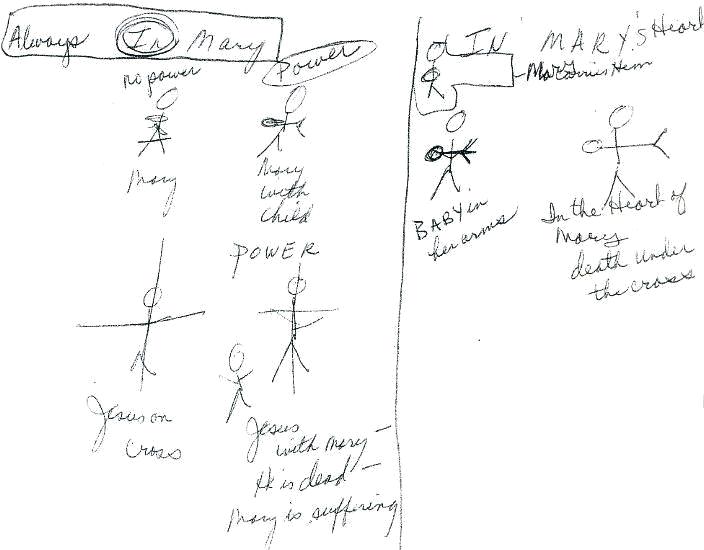 Always In Mary
no power
Power
Mary
Mary
with
child
POWER
Jesus on
Cross
Jesus
with Mary —
He is dead —
Mary is suffering
IN MARY'S Heart
BABY in
her arms
In the Heart of
Mary
death under
the cross